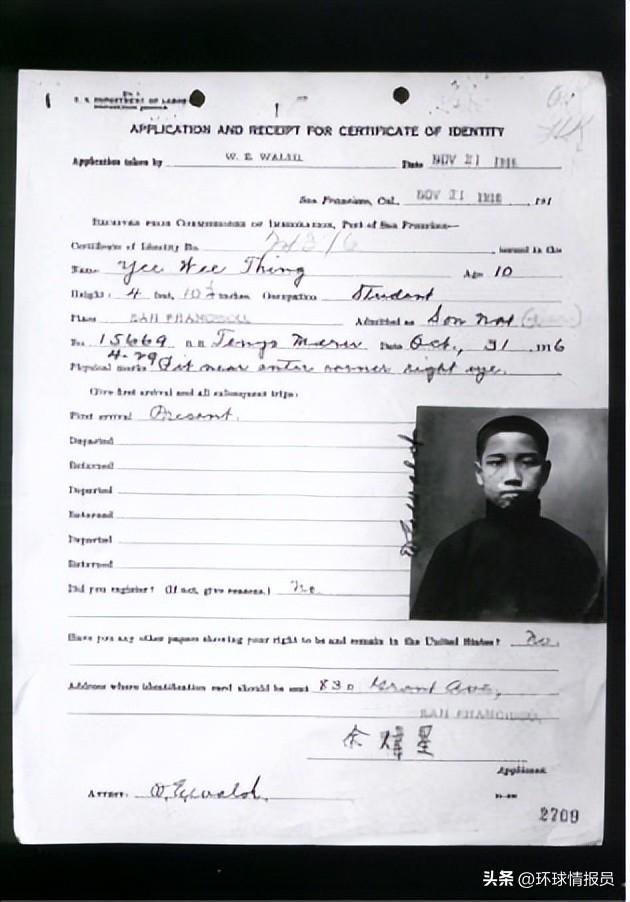 U. S. DEPARTMENT OF LABOR
APPLICATION AND RECEIPT FOR CERTIFICATE OF IDENTITY
Application taken by W. E. WALSH Date NOV 21 1916
San Francisco, Cal., NOV 21 1916, 191
RECEIVED FROM COMMISSIONER OF IMMIGRATION, Port of San Francisco—
Certificate of Identity No. 24376, issued in the
Name Yee Wee Thing Age 10
Height: 4 feet, 10½ inches Occupation Student
Place SAN FRANCISCO Admitted as Son Nat
No. 15669 Tenyo Maru Date Oct., 31, 1916
4-29
Physical marks Pit near outer corner right eye.
Give first arrival and all subsequent trips:
First arrival Present.
Departed
Returned
Departed
Returned
Departed
Returned
Did you register? (If not, give reasons.) No
Have you any other papers showing your right to be and remain in the United States? No.
Address where identification card should be sent 830 Grant Ave,
SAN FRANCISCO,
余煒星
Applicant
ATTEST: W. E. Walsh.
2709
头条 @环球情报员